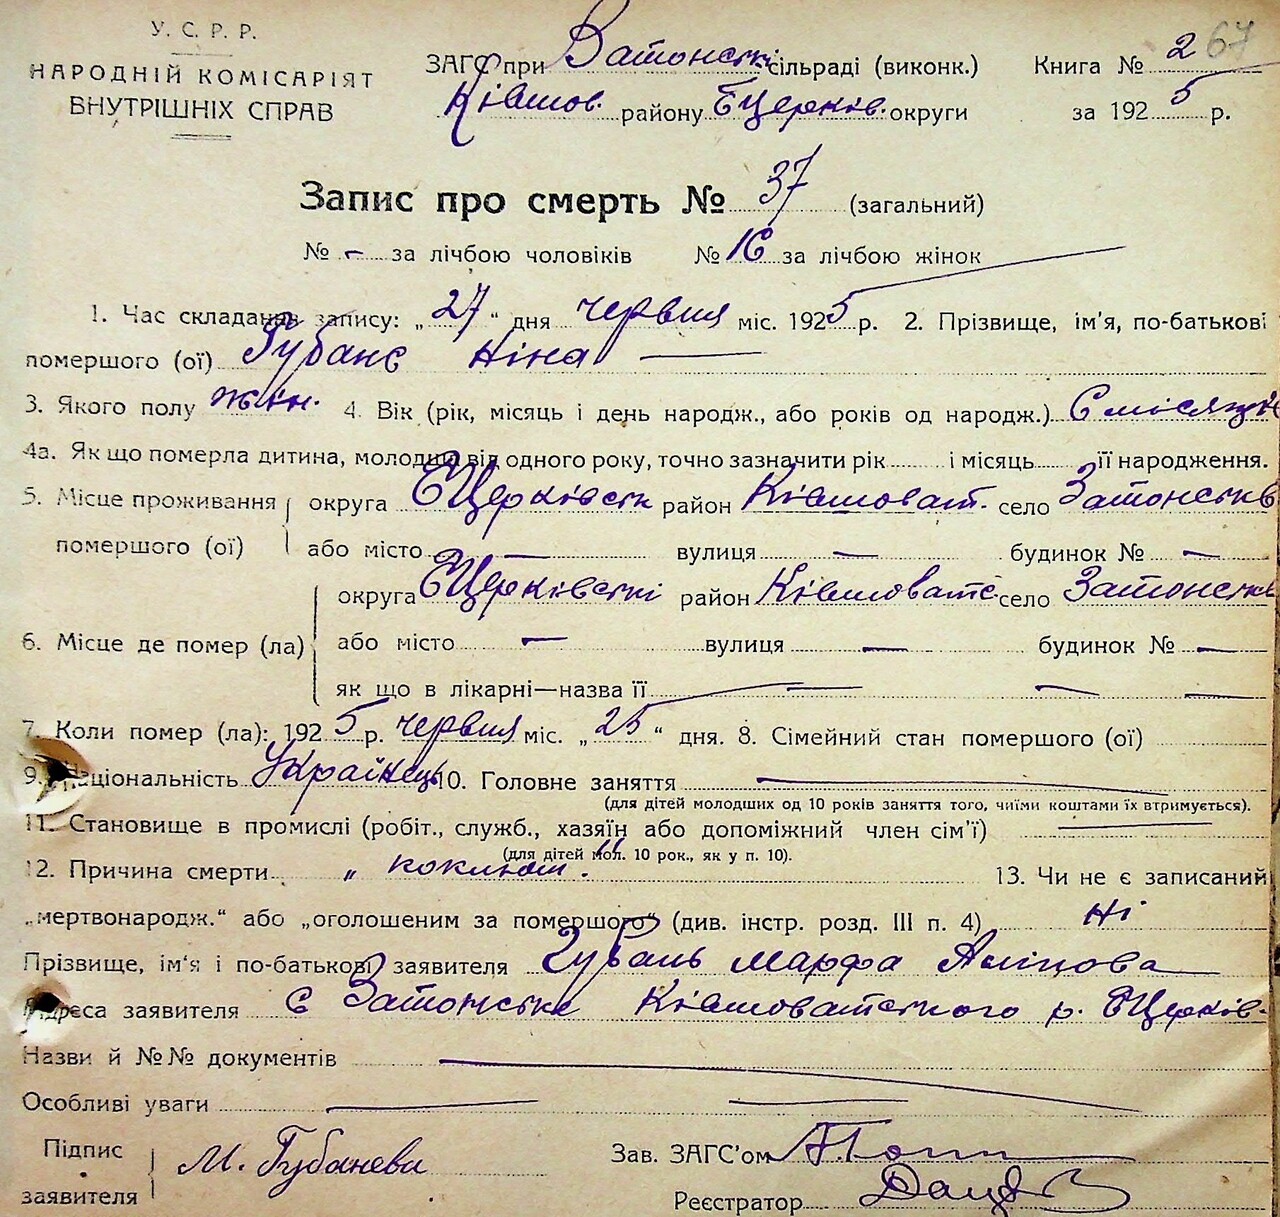 У. С. Р. Р.
НАРОДНІЙ КОМІСАРІЯТ
ВНУТРІШНІХ СПРАВ
ЗАГС при Затонські сільраді (виконк.) Книга № 2 67
Ківшов. району БЦерків. округи за 1925 р.
Запис про смерть № 37 (загальний)
№ - за лічбою чоловіків № 16 за лічбою жінок
1. Час складання запису: „27“ дня червня міс. 1925 р. 2. Прізвище, ім'я, по-батькові
померлого (ої) Губанє Ніна —
3. Якого полу жін. 4. Вік (рік, місяць і день народж., або років од народж.) 6 місяців
4а. Як що померла дитина, молодша від одного року, точно зазначити рік і місяць її народження.
5. Місце проживання округа БЦерківськ район Ківшоват. село Затонськ
помершого (ої) або місто — вулиця — будинок № —
округа БЦерківські район Ківшоватс село Затонськ
6. Місце де помер (ла) або місто — вулиця — будинок № —
як що в лікарні—назва її — — —
7. Коли помер (ла): 1925 р. червня міс. „25“ дня. 8. Сімейний стан помершого (ої)
9. Національність Українець 10. Головне заняття —
(для дітей молодших од 10 років заняття того, чиїми коштами їх втримується).
11. Становище в промислі (робіт., служб., хазяїн або допоміжний член сім'ї) —
(для дітей мол. 10 рок., як у п. 10).
12. Причина смерти „коклюш". 13. Чи не є записаний
„мертвонародж.“ або „оголошеним за помершого“ (див. інстр. розд. III п. 4) Ні
Прізвище, ім'я і по-батькові заявителя Губань Марфа
Адреса заявителя с Затонське Ківшоватського р. БЦерків.
Назви й №№ документів —
Особливі уваги — —
Підпис М. Губанева Зав. ЗАГС'ом
заявителя Реєстратор